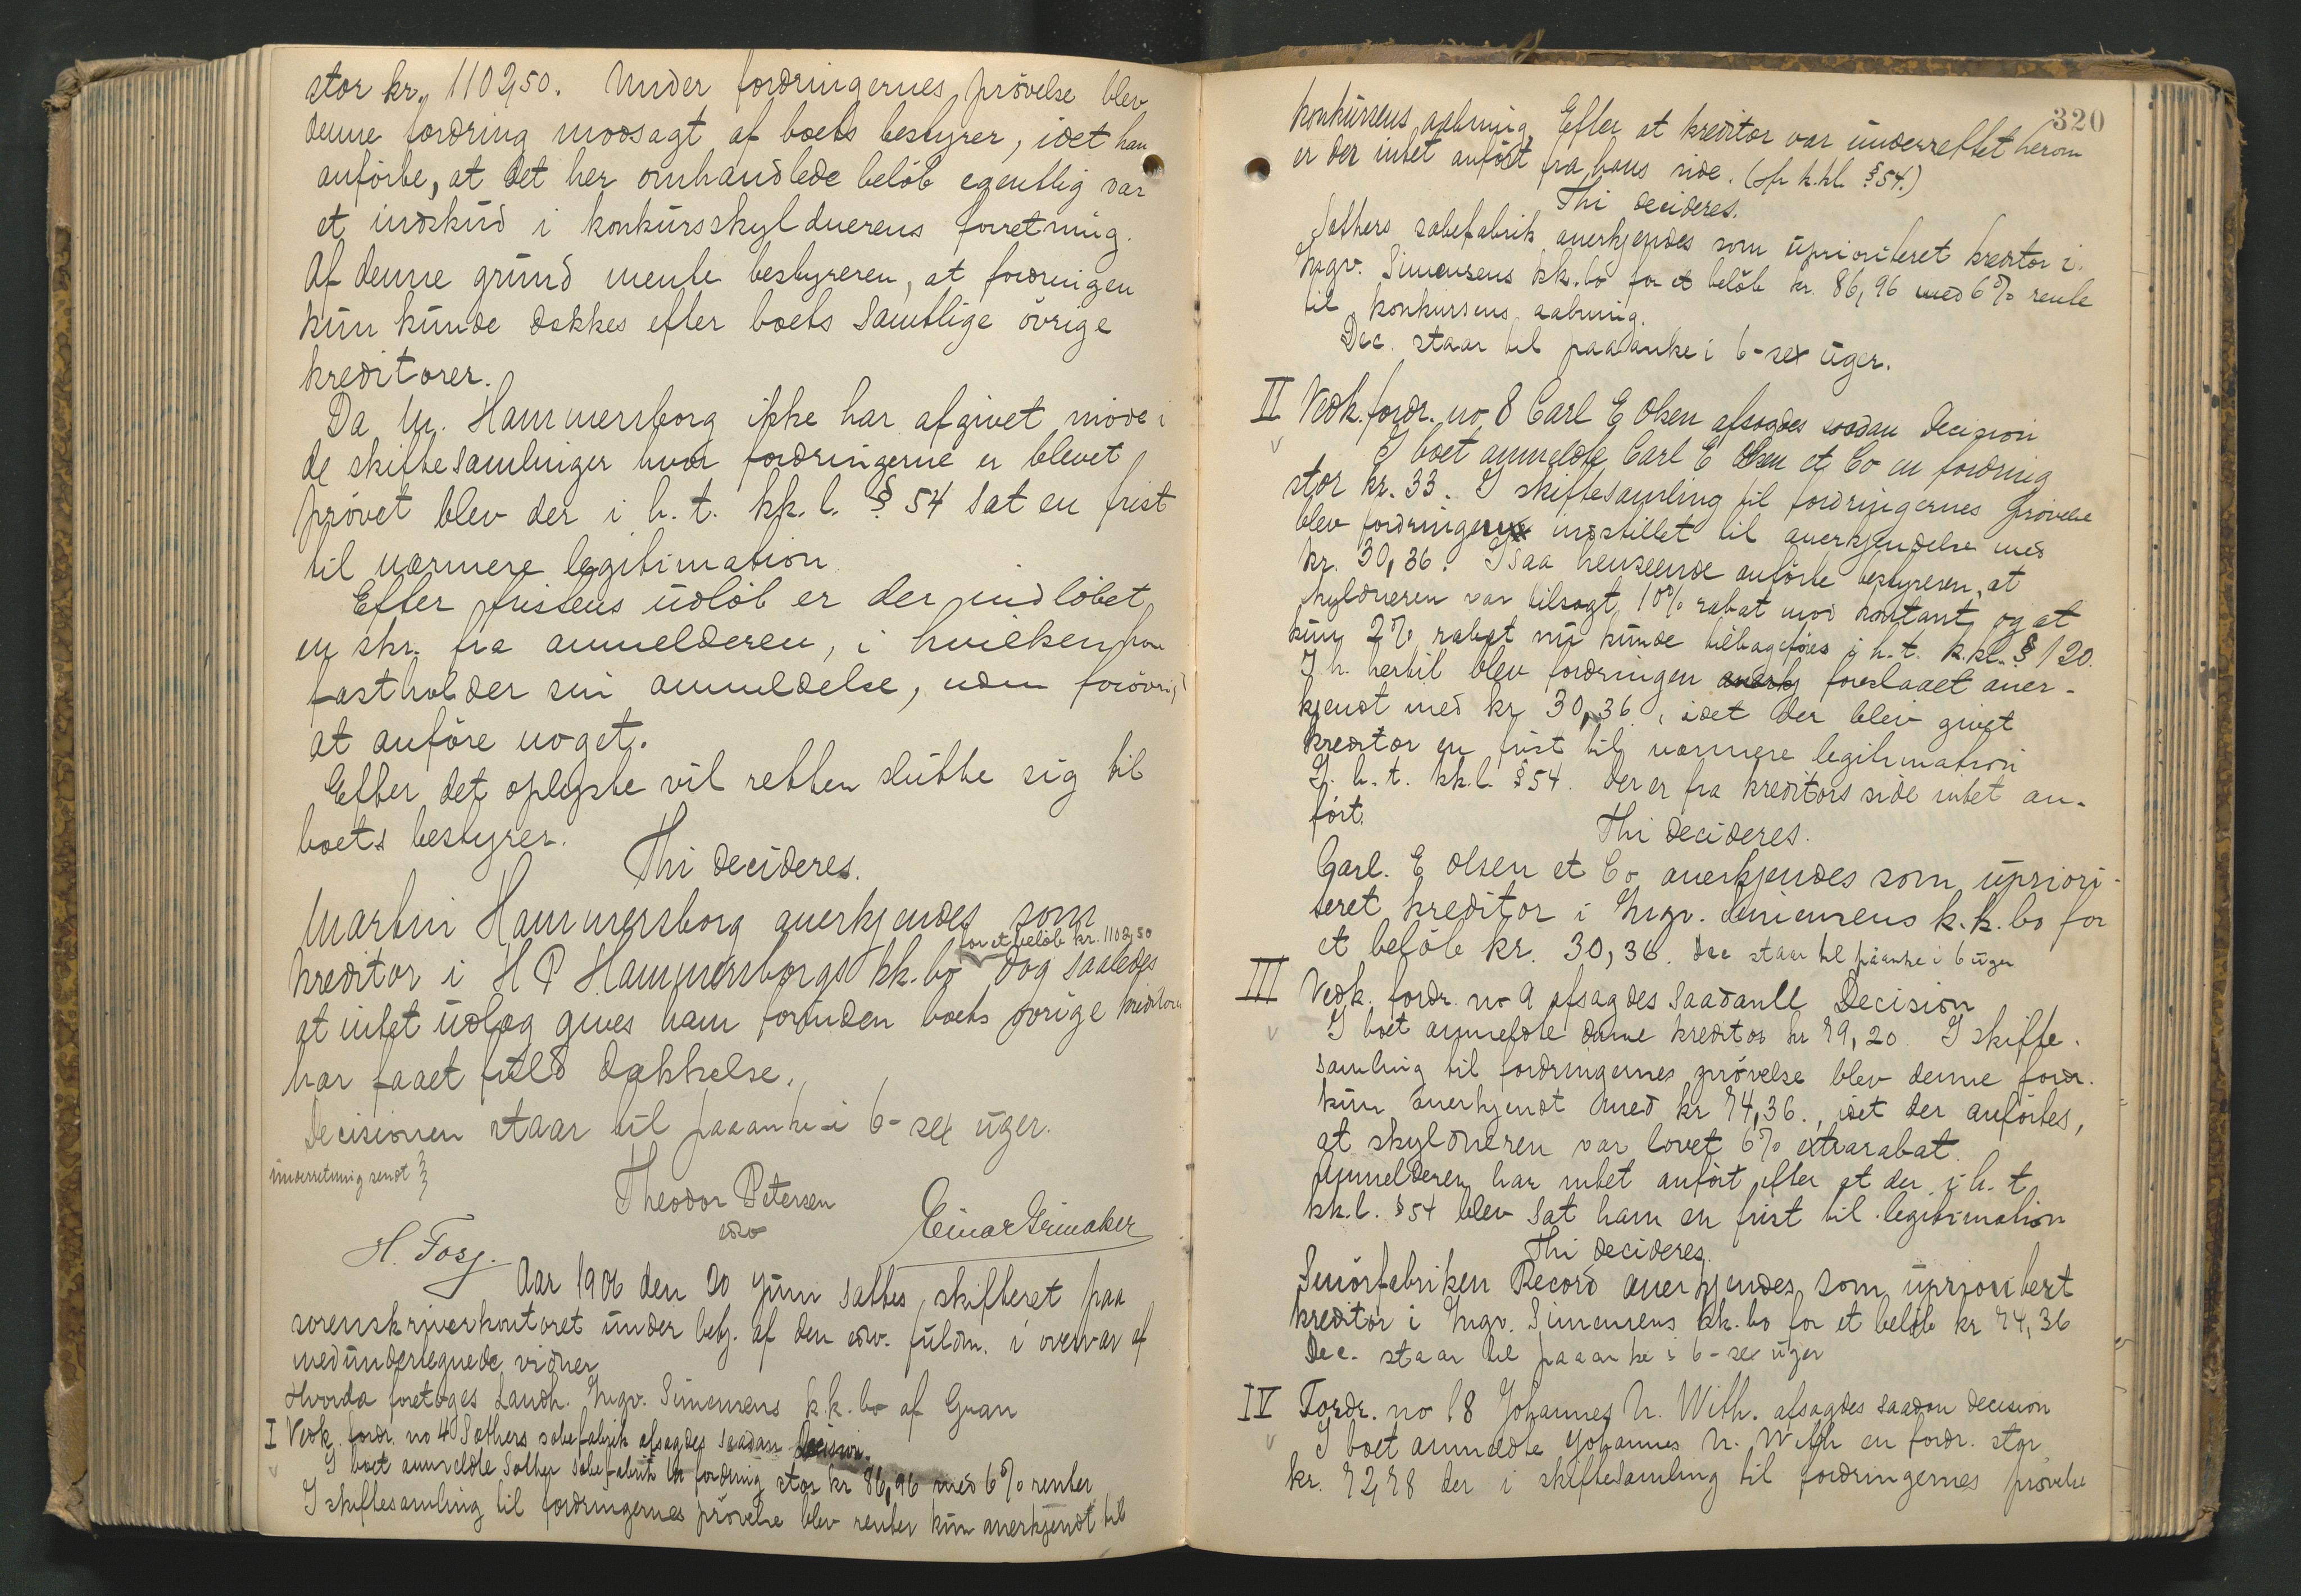 stor kr. 1102,50. Under fordringernes prövelse blev
denne fordring modsagt af boets bestyrer, idet han
anförte, at det her omhandlede belöb egentlig var
et indskud i konkursskyldnerens forretning.
Af denne grund mente bestyreren, at fordringen
kun kunde dækkes efter boets samtlige övrige
kreditorer.
Da M. Hammersborg ikke har afgivet möde i
de skiftesamlinger hvor fordringerne er blevet
prövet blev der i h. t. kk. l. § 54 sat en frist
til nærmere legitimation.
Efter fristens udlöb er der indlöbet
en skr. fra anmelderen, i hvilken han
fastholder sin anmeldelse, uden forövrigt
at anföre noget.
Efter det oplyste vil retten slutte sig til
boets bestyrer.
Thi decideres.
Martin Hammersborg anerkjendes som
for et belöb kr. 1102,50
kreditor i H P Hammersborgs kk. bo dog saaledes
at intet udlæg gives ham forinden boets övrige kreditorer
har faaet fuld dækkelse.
Decisionen staar til paaanke i 6 - sex uger.
Underretning sendt
Theodor Petersen
edv
Einar Grinaker
H. Fosj.
Aar 1906 den 20 juni sattes skifteret paa
sorenskriverkontoret under best. af den edv. fuldm. i overvær af
medundertegnede vidner
Hvorda foretoges Landh. Ingv. Simensens k.k. bo af Gran
I Vedk. fordr. no 4 Sæthers sæbefabrik afsagdes saadan Decision.
I boet anmeldte Sæther sæbefabrik en fordring stor kr 86,96 med 6% renter
I skiftesamling til fordringernes prövelse blev renter kun anerkjendt til
320
konkursens aabning. Efter at kreditor var underrettet herom
er der intet anfört fra hans side. (sfr k.kl. § 54.)
Thi decideres.
Sæthers sæbefabrik anerkjendes som uprioriteret kreditor i
Ingv. Simensens kk. bo for et belöb kr. 86,96 med 6% rente
til konkursens aabning.
Dec. staar til paaanke i 6 - sex uger.
II Vedk. fordr. no 8 Carl E Olsen afsagdes saadan decision
I boet anmeldte Carl E Olsen et Co en fordring
stor kr. 33. I skiftesamling til fordringernes prövelse
blev fordringen indstillet til anerkjendelse med
kr. 30,36. I saa henseende anförte bestyreren, at
skyldneren var tilsagt 10% rabat mod kontant og at
kun 2% rabat nu kunde tilbageföres i h. t. k.kl. § 120.
I h. hertil blev fordringen anerkj foreslaaet aner-
kjendt med kr 30,36, idet der blev givet
kreditor en frist til nærmere legitimation
I. h. t. kk.l. § 54. Der er fra kreditors side intet an-
fört.
Thi decideres.
Carl. E Olsen et Co anerkjendes som upriori-
teret kreditor i Ingv. Simensens k.k. bo for
et belöb kr. 30,36. Dec staar til paaanke i 6 uger
III Vedk. fordr. no 9 afsagdes saadan Decision
I boet anmeldte denne kreditor kr 79,20. I skifte-
samling til fordringernes prövelse blev denne fordr.
kun anerkjendt med kr 74,36., idet der anförtes,
at skyldneren var lovet 6% extrarabat.
Anmelderen har intet anfört efter at der i h. t.
kk.l. § 54 blev sat ham en frist til legitimation
Thi decideres.
Smörfabriken Record anerkjendes som uprioritert
kreditor i Ingv. Simensens kk. bo for et belöb kr 74,36
Dec. staar til paaanke i 6 - sex uger
IV Fordr. no 18 Johannes N. With. afsagdes saadan decision
I boet anmeldte Johannes N. With en fordr. stor
kr. 72,78 der i skiftesamling til fordringernes prövelse